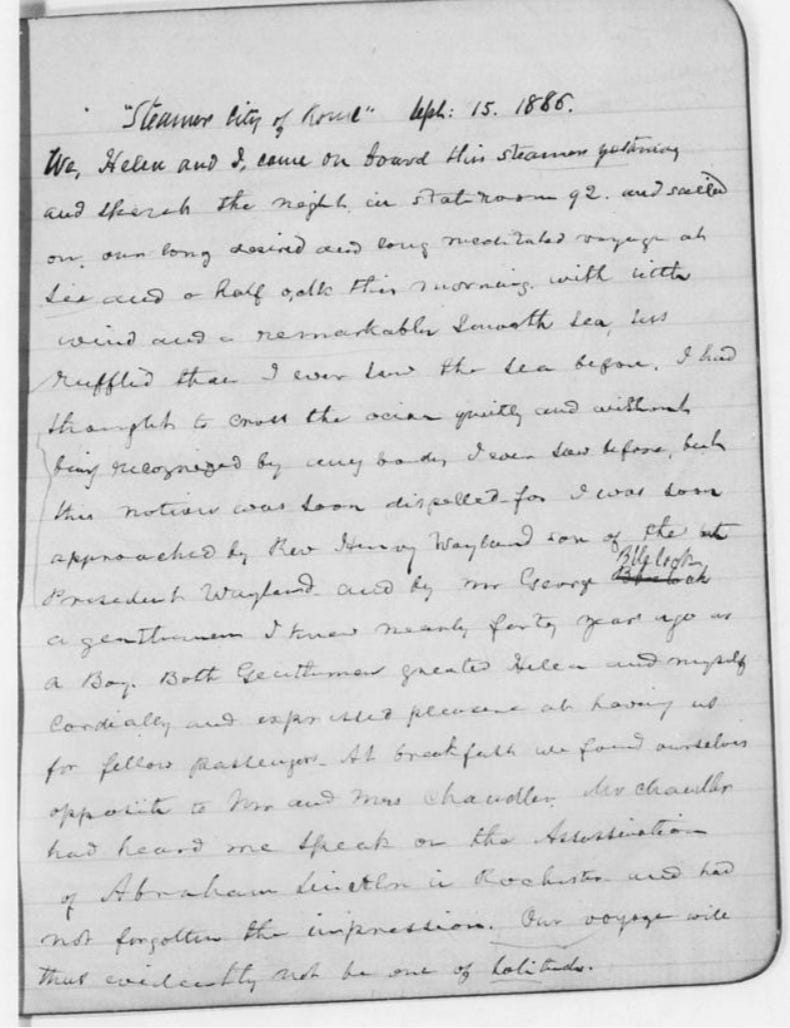 "Steamer City of Rome" Sept: 15. 1886.
We, Helen and I, came on board this steamer yesterday
and spent the night in stateroom 92. and sailed
on our long desired and long meditated voyage at
Six and a half oclk this morning. with little
wind and a remarkably Smooth Sea, less
ruffled than I ever saw the sea before. I had
thought to cross the ocean quietly and without
being recognized by any body I ever saw before, but
this notion was soon dispelled for I was soon
approached by Rev Henry Wayland son of the
President Wayland and by mr George Bullock
a gentleman I knew nearly forty years ago as
a Boy. Both Gentlemen greeted Helen and myself
Cordially and expressed pleasure at having us
for fellow passengers. At breakfast we found ourselves
opposite to Mr and Mrs Chandler. Mr Chandler
had heard me speak on the Assassination
of Abraham Lincoln in Rochester and had
not forgotten the impression. Our voyage will
thus evidently not be one of Solitude.